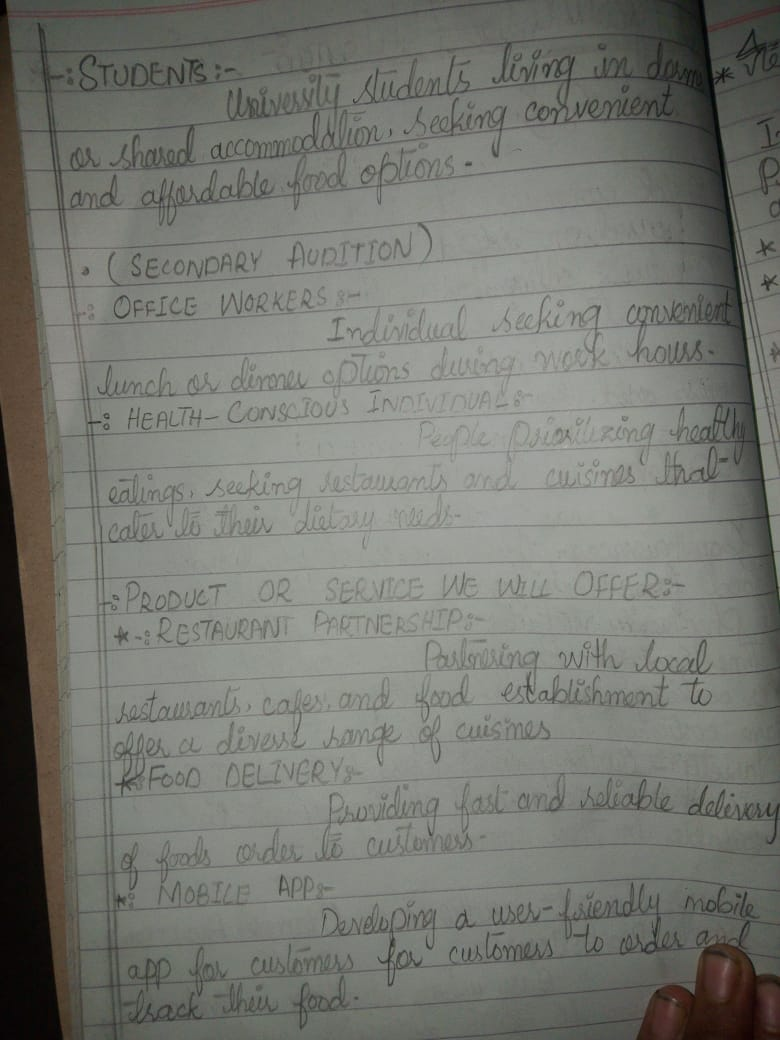 -: STUDENTS :-
University students living in dorms
or shared accommodation, seeking convenient
and affordable food options.
• (SECONDARY AUDITION)
-: OFFICE WORKERS :-
Individual seeking convenient
lunch or dinner options during work hours.
-: HEALTH-CONSCIOUS INDIVIDUAL:-
People prioritizing healthy
eatings, seeking restaurants and cuisines that
cater to their dietary needs-
-: PRODUCT OR SERVICE WE WILL OFFER:-
*-: RESTAURANT PARTNERSHIP:-
Partnering with local
restaurants, cafes, and food establishment to
offer a diverse range of cuisines
*: FOOD DELIVERY:-
Providing fast and reliable delivery
of foods order to customers-
*: MOBILE APP:-
Developing a user-friendly mobile
app for customers for customers to order and
track their food.